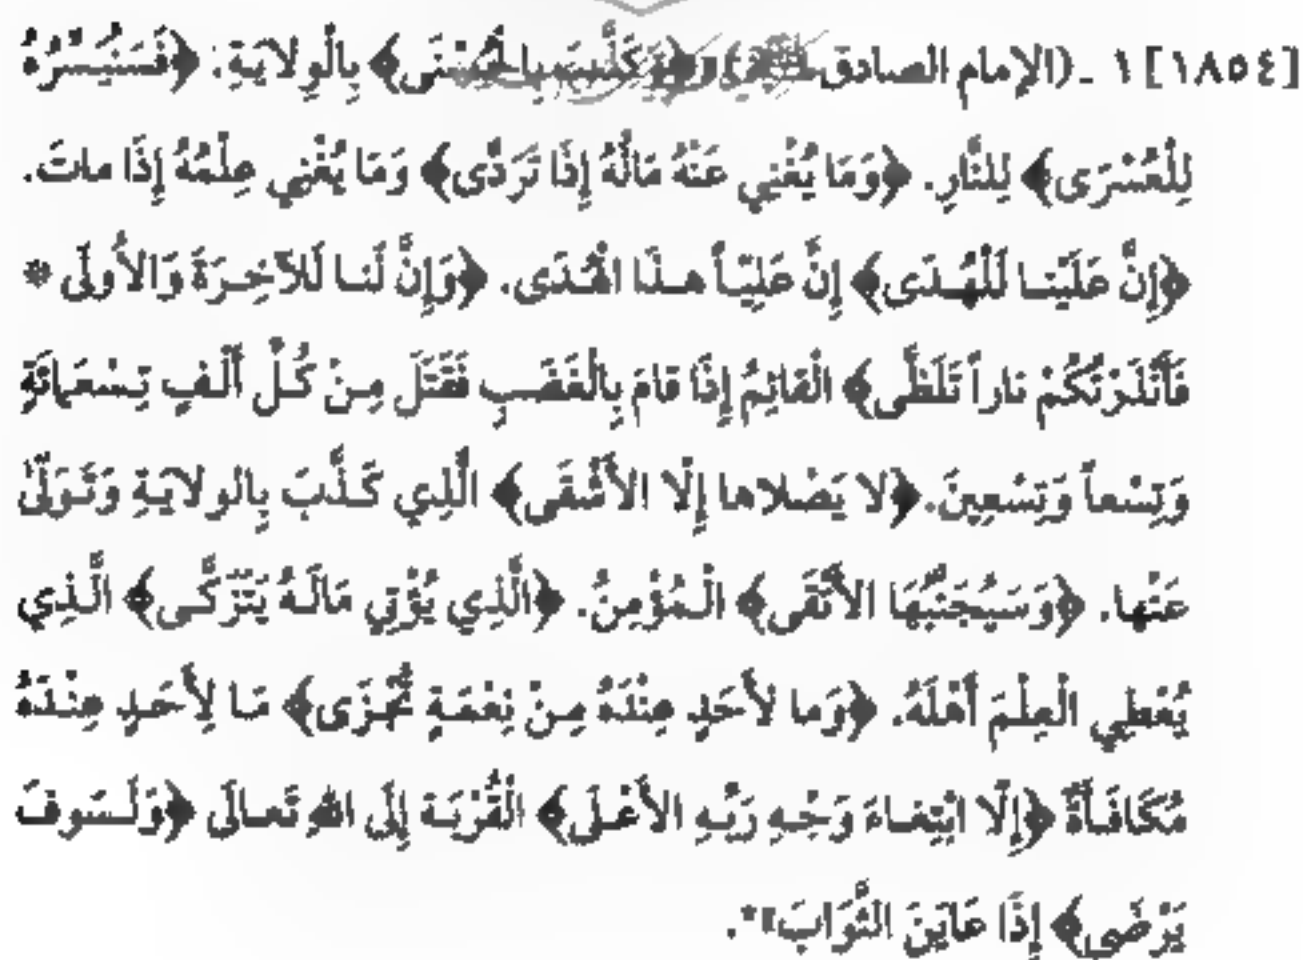 [١٨٥٤] ١ ـ (الإمام الصادق وَكَذَّبَ بِالْحُسْنَى﴾ بِالْوِلايَةِ: ﴿فَسَنُيَسِّرُهُ
لِلْعُسْرَى﴾ لِلنَّارِ. ﴿وَمَا يُغْنِي عَنْهُ مَالُهُ إِذَا تَرَدَّى﴾ وَمَا يُغْنِي عِلْمُهُ إِذَا ماتَ.
﴿إِنَّ عَلَيْنـا لَلْهُـدَى﴾ إِنَّ عَلِيّـاً هـذَا الْهُـدَى. ﴿وَإِنَّ لَنـا لَلآخِـرَةَ وَالأُولَى *
فَأَنْذَرْتُكُمْ ناراً تَلَظَّى﴾ الْقائِمُ إِذَا قامَ بِالْغَضَبِ فَقَتَلَ مِـنْ كُـلِّ أَلْـفٍ تِـسْعَمائَةٍ
وَتِسْعاً وَتِسْعِينَ. ﴿لا يَصْلاها إِلَّا الأَشْقَى﴾ الَّذِي كَـذَّبَ بِالولايَـةِ وَتَـوَلَّىٰ
عَنْها. ﴿وَسَيُجَنَّبُهَا الأَتْقَى﴾ الْـمُؤْمِنُ. ﴿الَّذِي يُؤْتِي مَالَـهُ يَتَزَكَّـى﴾ الَّـذِي
يُعْطِي الْعِلْمَ أَهْلَهُ. ﴿وَما لأَحَدٍ عِنْدَهُ مِـنْ نِعْمَـةٍ تُجْـزَى﴾ مَـا لِأَحَـدٍ عِنْـدَهُ
مُكَافَـأَةٌ ﴿إِلَّا ابْتِغـاءَ وَجْـهِ رَبِّـهِ الأَعْـلَى﴾ الْقُرْبَـة إِلَى اللهِ تَعـالَى ﴿وَلَـسَوفَ
يَرْضَى﴾ إِذَا عَايَنَ الثَّوَابَ»*.